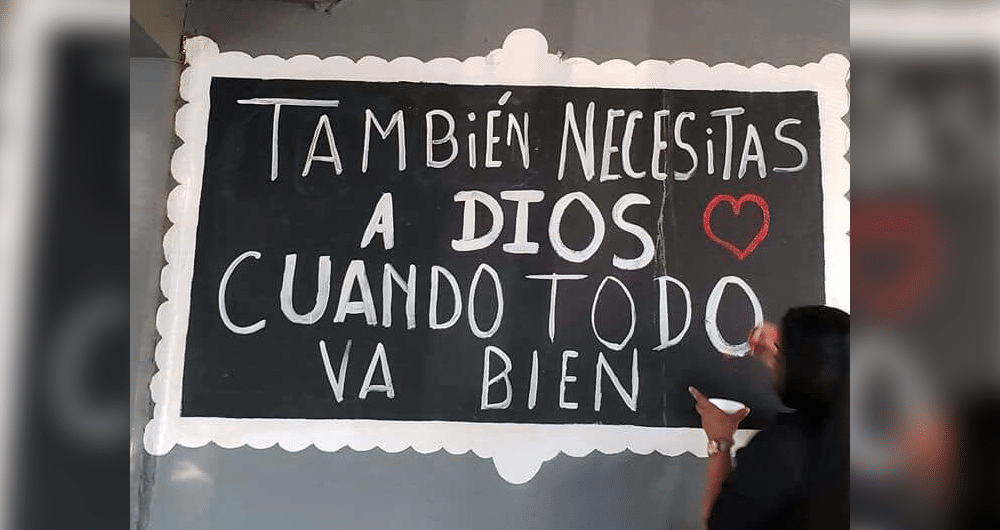 TAMBiÉN NECESiTAS
A DIOS
CUANDO TODO
VA BIEN